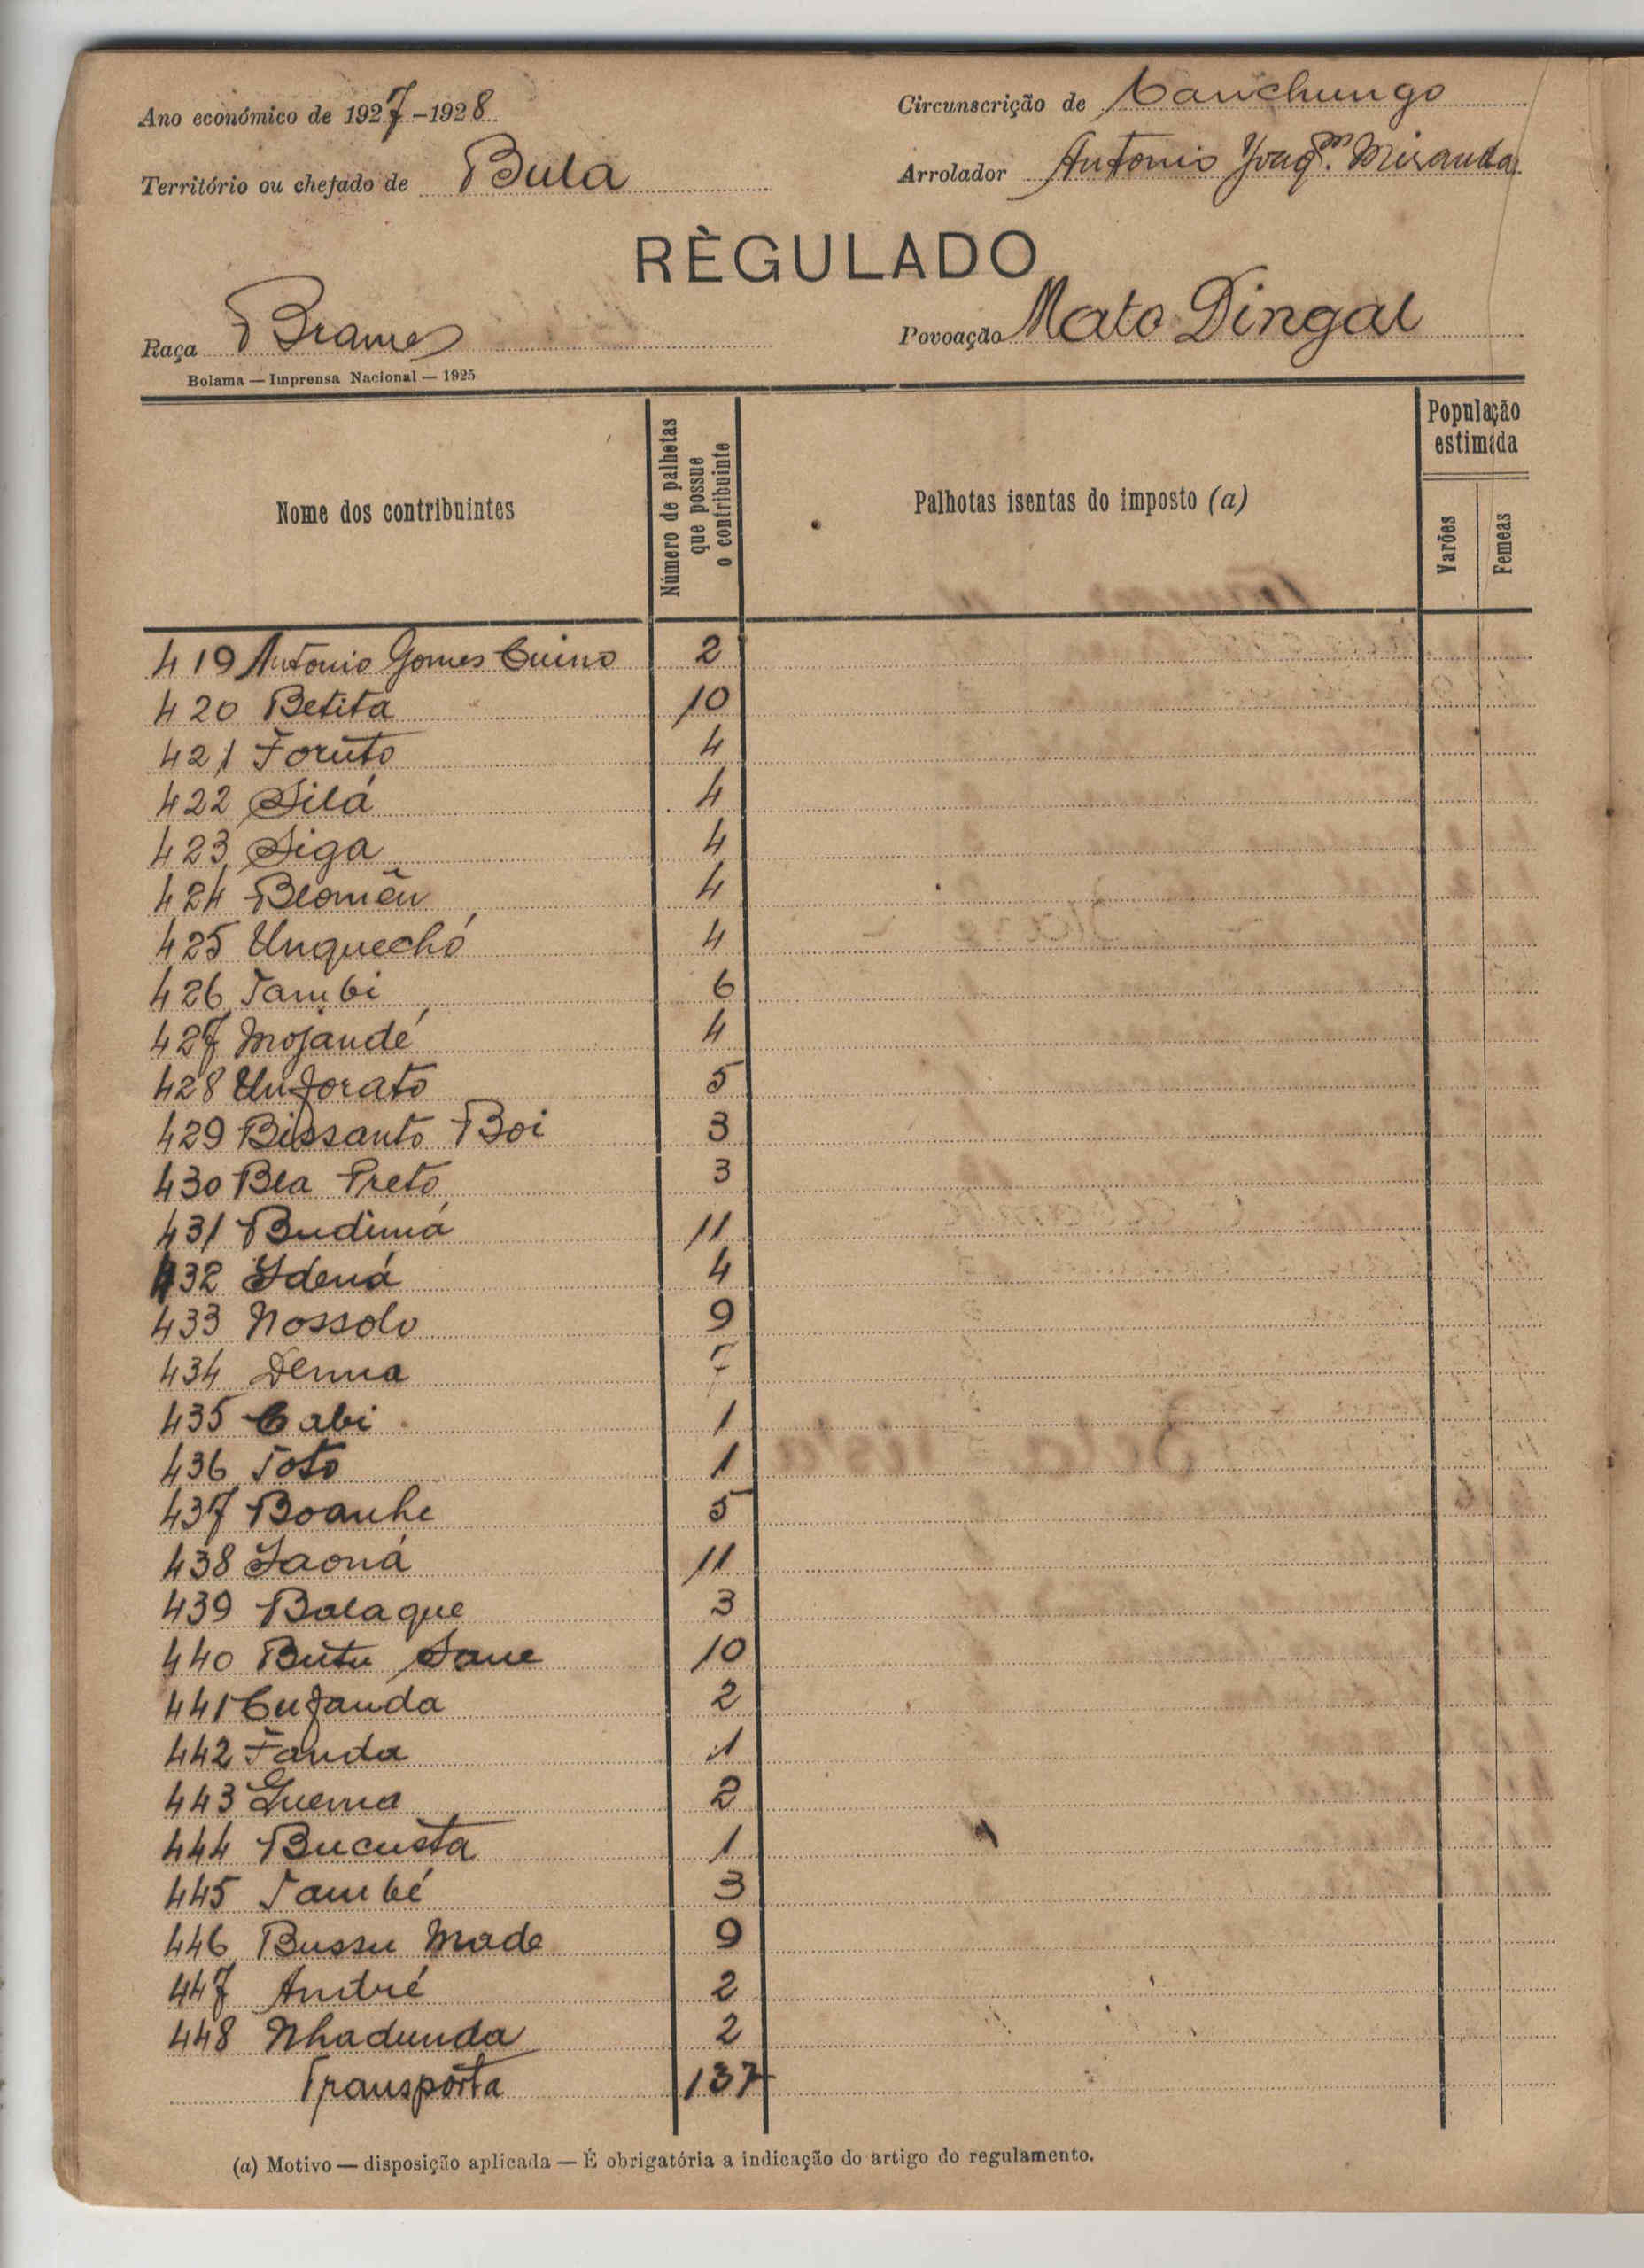 Ano económico de 1927-1928
Circunscrição de Canchungo
Território ou chefado de Bula
Arrolador Antonio Joaqm. Miranda
RÈGULADO
Raça Brames
Povoação Mato Dingal
Bolama — Imprensa Nacional — 1925
Nome dos contribuintes
Número de palhotas que possue o contribuinte
Palhotas isentas do imposto (a)
População estimada
Varões
Femeas
419 Antonio Gomes Cuino 2
420 Betita 10
421 Foruto 4
422 Silá 4
423 Siga 4
424 Blomên 4
425 Unquechó 4
426 Tambi 6
427 Mojandé 4
428 Unforato 5
429 Bissanto Boi 3
430 Bla Preto 3
431 Budimá 11
432 Idená 4
433 Nossolo 9
434 Denna 7
435 Cabi 1
436 Toto 1
437 Boanhe 5
438 Jaoná 11
439 Balaque 3
440 Butu Sane 10
441 Cufanda 2
442 Fanda 1
443 Guema 2
444 Bucusta 1
445 També 3
446 Bussu Made 9
447 André 2
448 Nhadunda 2
Transpórta 137
(a) Motivo — disposição aplicada — É obrigatória a indicação do artigo do regulamento.